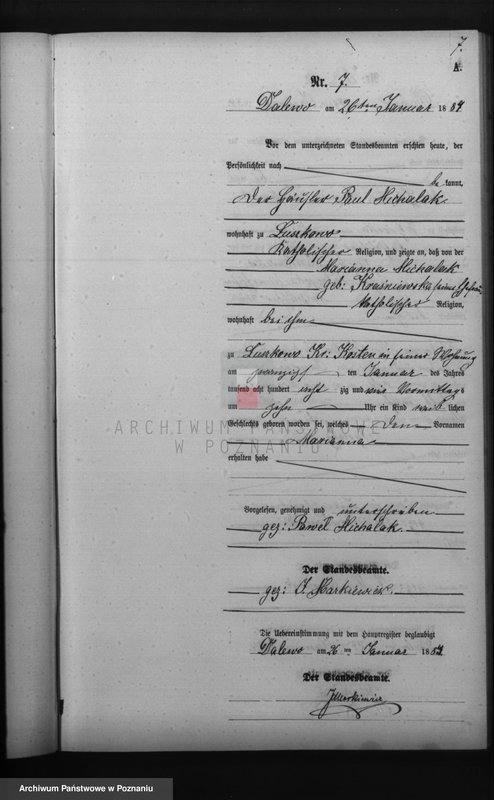 7.
A.
Nr. 7.
Dalewo am 26ten Januar 1884
Vor dem unterzeichneten Standesbeamten erschien heute, der
Persönlichkeit nach
be kannt,
der Häusler Paul Michalak
wohnhaft zu Luszkowo
katholischer Religion, und zeigte an, daß von der
Marianna Michalak
geb: Kraśniewska seine Ehefrau
katholischer Religion,
wohnhaft bei ihm
zu Luszkowo Kr: Kosten in seiner Wohnung
am ten Januar des Jahres
tausend acht hundert acht zig und vier Vormittags
um zehn Uhr ein Kind weib lichen
Geschlechts geboren worden sei, welches den Vornamen
Marianna
erhalten habe
ARCHIWUM PAŃSTWOWE
W POZNANIU
Vorgelesen, genehmigt und unterschrieben
gez: Paweł Michalak.
Der Standesbeamte.
gez: J. Markiewicz.
Die Uebereinstimmung mit dem Hauptregister beglaubigt
Dalewo am 26 ten Januar 1884
Der Standesbeamte.
JMarkiewicz
Archiwum Państwowe w Poznaniu